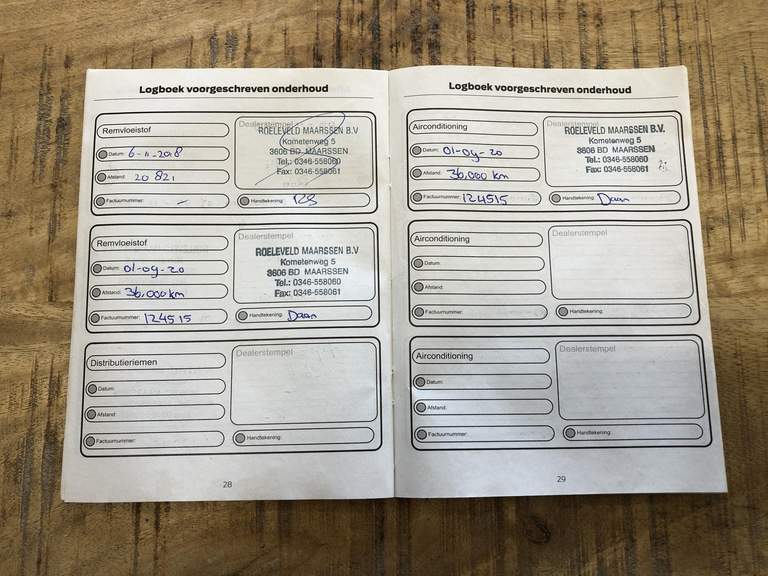 Logboek voorgeschreven onderhoud
Remvloeistof
Datum: 6-11-2018
Afstand: 20 821
Factuurnummer: -
Dealerstempel
ROELEVELD MAARSSEN B.V
Kometenweg 5
3606 BD MAARSSEN
Tel.: 0346-558060
Fax: 0346-558061
Handtekening:
Remvloeistof
Datum: 01-09-20
Afstand: 36.000 km
Factuurnummer: 124515
Dealerstempel
ROELEVELD MAARSSEN B.V
Kometenweg 5
3606 BD MAARSSEN
Tel.: 0346-558060
Fax: 0346-558061
Handtekening: Daan
Distributieriemen
Datum:
Afstand:
Factuurnummer:
Dealerstempel
Handtekening:
28
Logboek voorgeschreven onderhoud
Airconditioning
Datum: 01-09-20
Afstand: 36.000 km
Factuurnummer: 124515
Dealerstempel
ROELEVELD MAARSSEN B.V.
Kometenweg 5
3606 BD MAARSSEN
Tel.: 0346-558060
Fax: 0346-558061
Handtekening: Daan
Airconditioning
Datum:
Afstand:
Factuurnummer:
Dealerstempel
Handtekening:
Airconditioning
Datum:
Afstand:
Factuurnummer:
Dealerstempel
Handtekening:
29